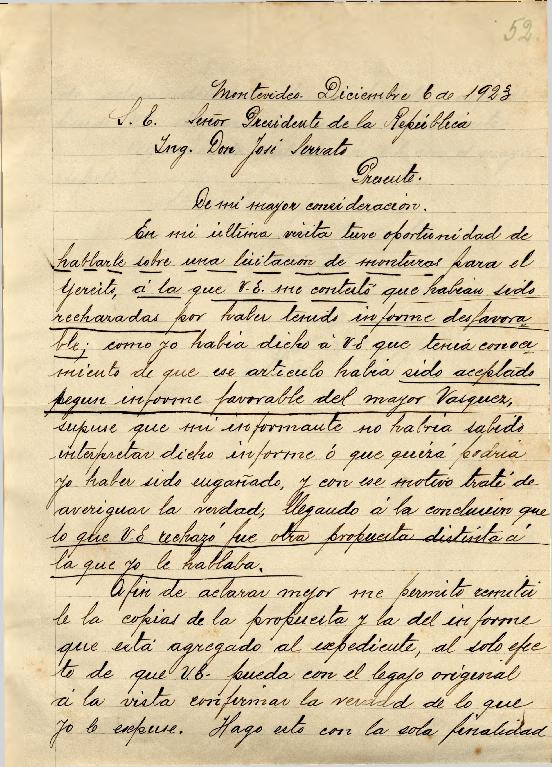 52.
Montevideo. Diciembre 6 de 1923
S. E. Señor Presidente de la República
Ing. Don José Serrato
Presente.
De mi mayor consideración.
En mi última visita tuve oportunidad de
hablarle sobre una licitacion de monturas para el
Ejercito, á la que V.E. me contestó que habian sido
rechazadas por haber tenido informe desfavora-
ble; como yo habia dicho á V.E que tenia conoci
miento de que ese articulo habia sido aceptado
segun informe favorable del mayor Vasquez,
supuse que mi informante no habria sabido
interpretar dicho informe ó que quizá podria
yo haber sido engañado, y con ese motivo traté de
averiguar la verdad, llegando á la conclusion que
lo que V.E rechazó fue otra propuesta distinta á
la que yo le hablaba.
Afin de aclarar mejor me permito remitir
le la copias de la propuesta y la del informe
que está agregado al expediente, al solo efec
to de que V.E. pueda con el legajo original
á la vista confirmar la verdad de lo que
yo le expuse. Hago esto con la sola finalidad